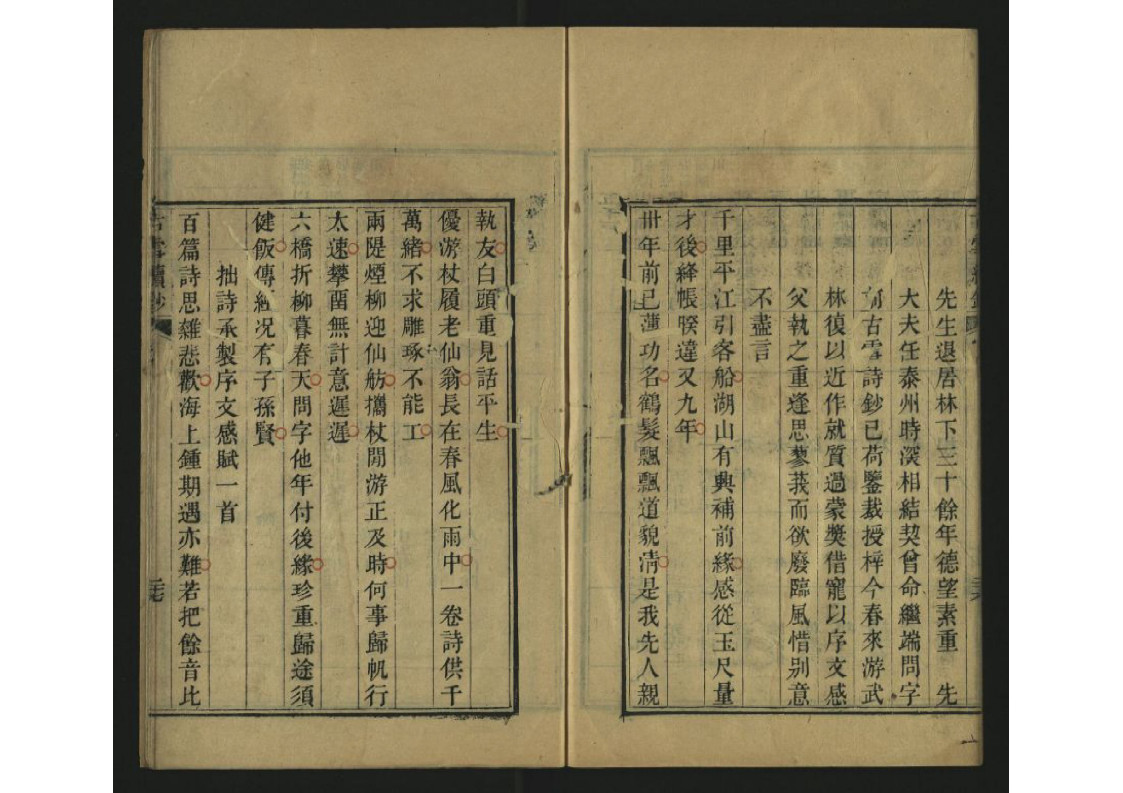 先生退居林下三十餘年德望素重　先
大夫任泰州時深相結契曾命繼端問字
古雪詩鈔已荷鑒裁授梓今春來游武
林復以近作就質過蒙奬借寵以序文感
父執之重逢思蓼莪而欲廢臨風惜别意
不盡言
千里平江引客船湖山有興補前緣感從玉尺量
才後絳帳暌違又九年
卅年前已薄功名鶴髮飄飄道貌清是我先人親
執友白頭重見話平生
優游杖履老仙翁長在春風化雨中一卷詩供千
萬緒不求雕琢不能工
兩隄煙柳迎仙舫攜杖閒游正及時何事歸帆行
太速攀畱無計意遲遲
六橋折柳暮春天問字他年付後緣珍重歸途須
健飯傳經况有子孫賢
拙詩承製序文感賦一首
百篇詩思雜悲歡海上鍾期遇亦難若把餘音比
古雪續鈔